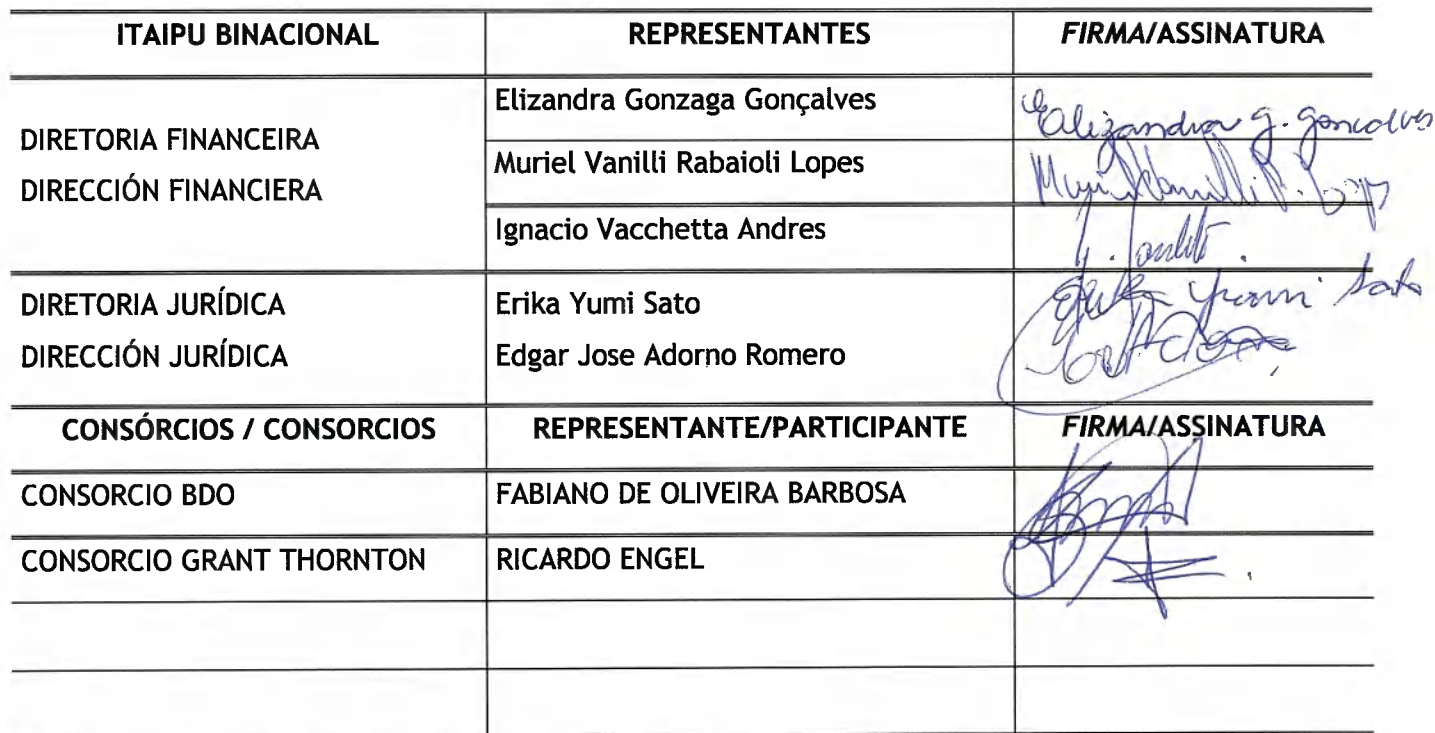 ITAIPU BINACIONAL REPRESENTANTES FIRMA/ASSINATURA
DIRETORIA FINANCEIRA
DIRECCIÓN FINANCIERA
Elizandra Gonzaga Gonçalves Elizandra G. Gonçalves
Muriel Vanilli Rabaioli Lopes
Ignacio Vacchetta Andres
DIRETORIA JURÍDICA Erika Yumi Sato Erika Yumi Sato
DIRECCIÓN JURÍDICA Edgar Jose Adorno Romero
CONSÓRCIOS / CONSORCIOS REPRESENTANTE/PARTICIPANTE FIRMA/ASSINATURA
CONSORCIO BDO FABIANO DE OLIVEIRA BARBOSA
CONSORCIO GRANT THORNTON RICARDO ENGEL